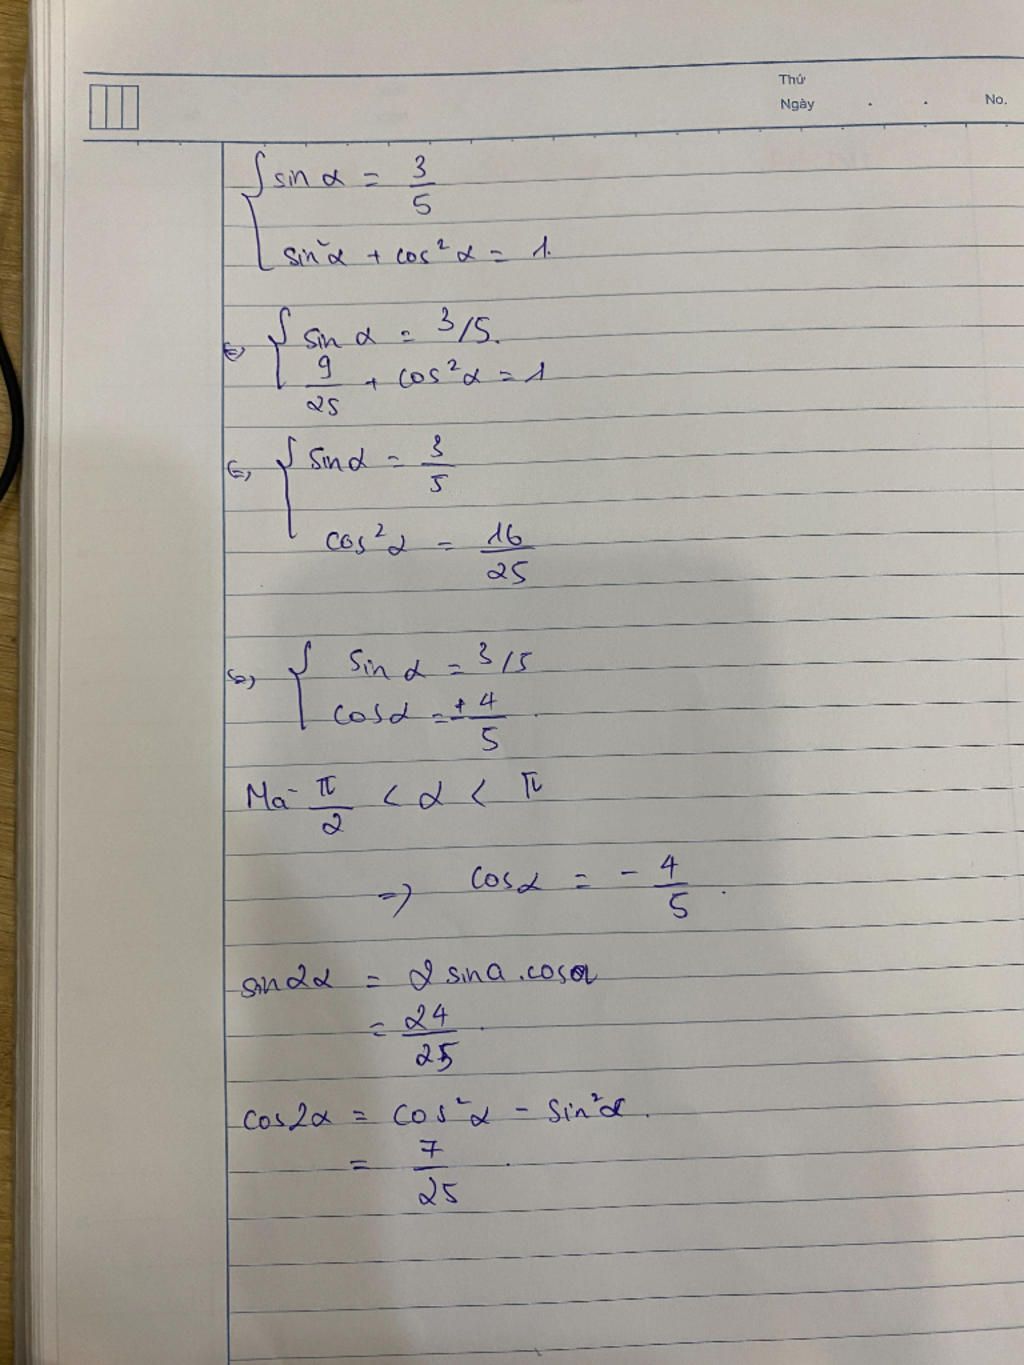 Thứ
Ngày . . No.
{ sin α = 3/5
sin²α + cos²α = 1.
⇔ { sin α = 3/5.
9/25 + cos²α = 1
⇔ { sin α = 3/5
cos²α = 16/25
⇔ { sin α = 3/5
cos α = ± 4/5.
Mà π/2 < α < π
=> cos α = - 4/5.
sin2α = 2 sina.cosα
= 24/25.
cos2α = cos²α - sin²α.
= 7/25.